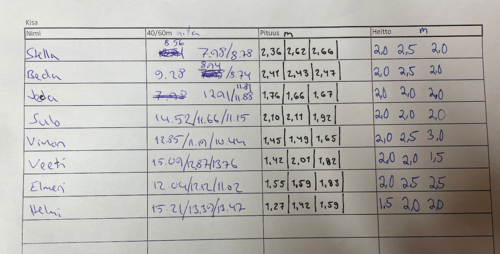 Kisa
Nimi 40/60m aita Pituus m Heitto m
Stella 8.56 7.98/8.78 2,36 2,62 2,66 2,0 2,5 2,0
Beda 9.28 8.74 /8.74 2,41 2,43 2,47 2,0 2,5 2,0
7.98 12.91/11.88 11.81 1,76 1,66 1,67 2,0 2,0 2,0
Sulo 14.52/11.66/11.15 2,10 2,11 1,92 2,0 2,0 2,0
12.85/11.19/10.44 1,45 1,49 1,65 2,0 2,5 3,0
Veeti 15.09/12.87/13.76 1,42 2,01 1,82 2,0 2,0 1,5
Elmeri 12.04/12.12/11.02 1,55 1,59 1,83 2,0 2,5 2,5
Helmi 15.21/13.39/12.47 1,27 1,42 1,59 1,5 2,0 2,0